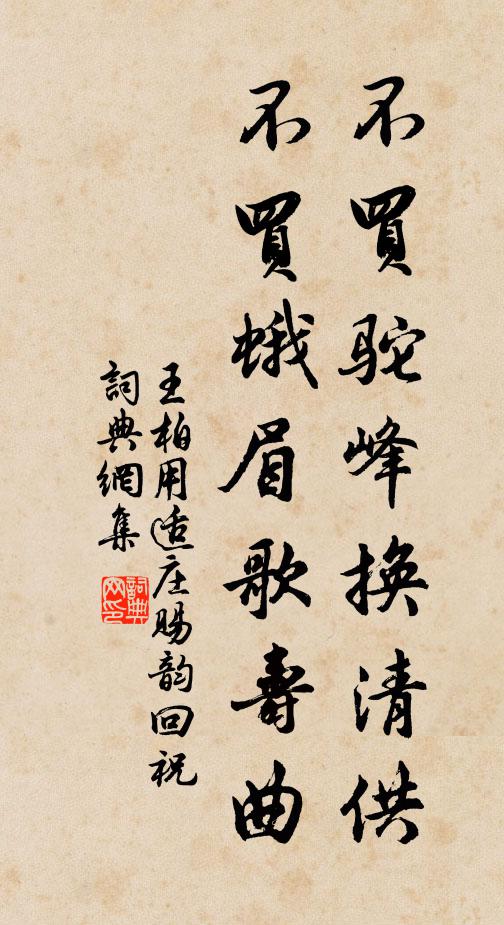 不買駝峰換清供
不買蛾眉歌壽曲
王柏用适庄赐韵回祝
詞典網集
詞典网印